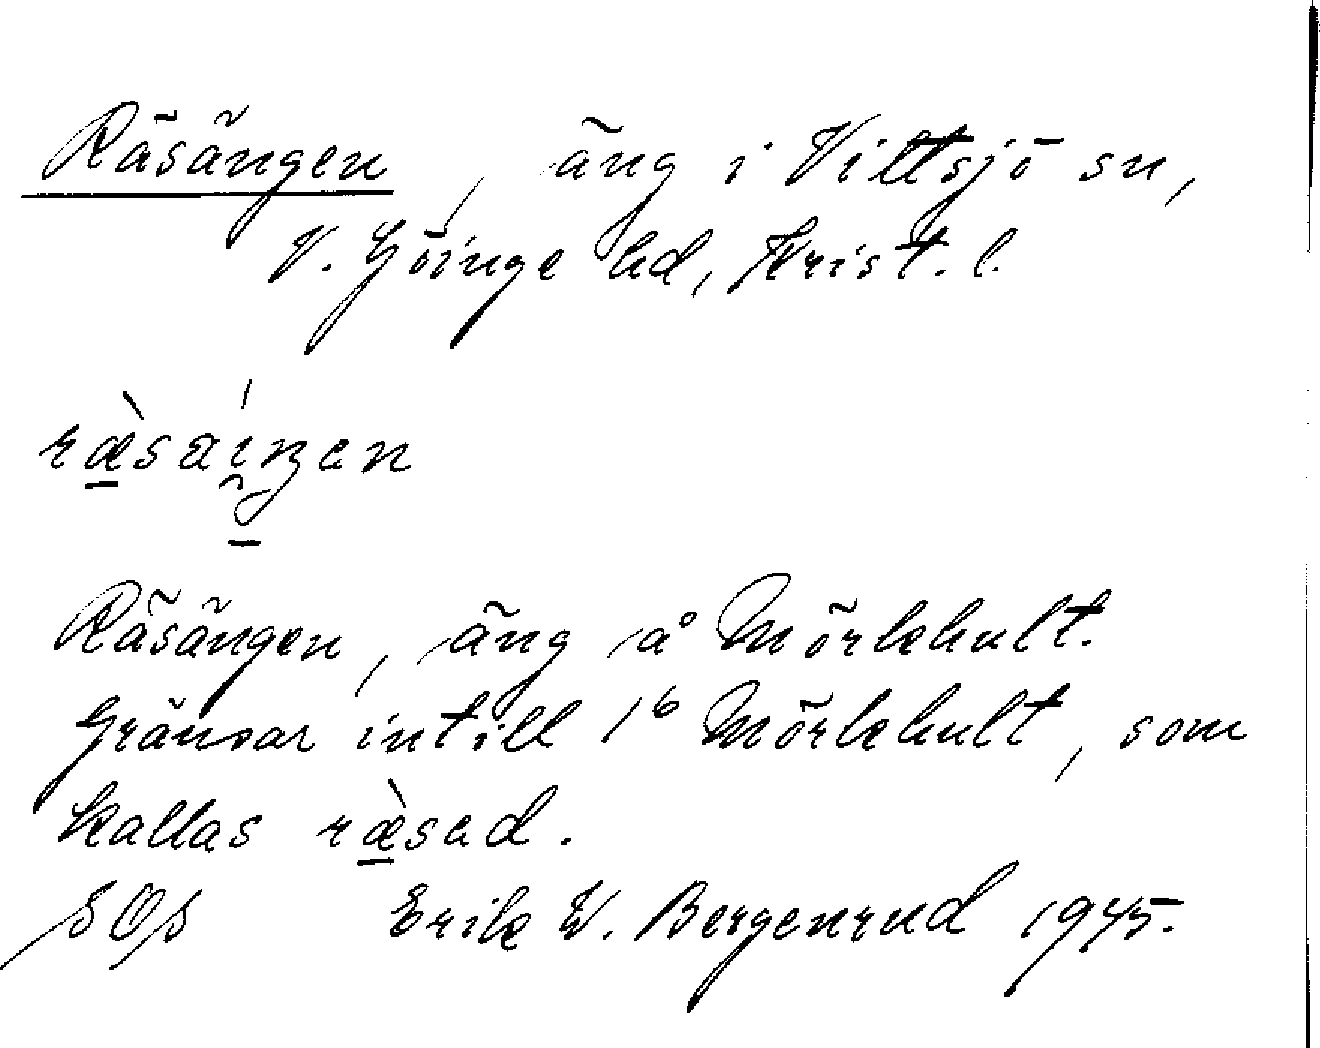 Räsängen, äng i Vittsjö sn,
V. Göinge hd, Krist. l.
Räsängen, äng å Mörkhult.
Gränsar intill 1⁶ Mörkhult, som
kallas ræ̀sed.
SOS Erik W. Bergenrud 1945.